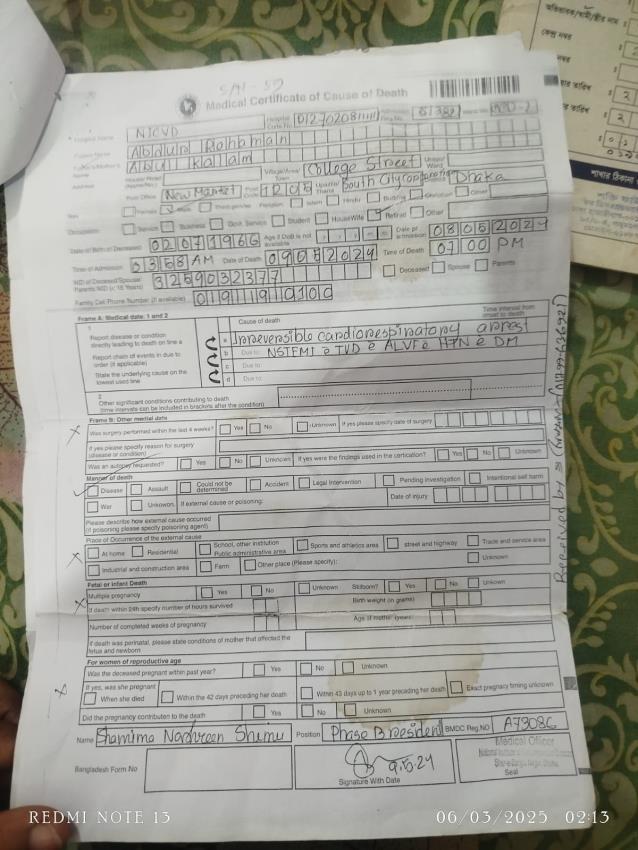 Medical Certificate of Cause of Death
Hospital Name NICVD
Abdur Rohman
Abul Kalam
Address Village/Area/Town College Street
Post Office New Market 1205 South City Corporation Dhaka
Sex Female Religion Islam Hindu Other
Occupation Service Business Govt. Service Student HouseWife Retired Other
Date of Birth of Deceased 02071966 Age if DoB is not available Date of admission 08052024
Time of Admission 03:58 AM Date of Death 09052024 Time of Death 07:00 PM
NID of Deceased/Spouse/ 3259032377 Deceased Spouse Parents
Parents NID (< 18 Years)
Family Cell Phone Number (if available)
Frame A: Medical data: 1 and 2
Cause of death Time interval from onset to death
1
Report disease or condition directly leading to death on line a
a Irreversible cardiorespiratory arrest
Report chain of events in due to order (if applicable)
b Due to: NSTEMI c TVD c ALVF c HTN c DM
State the underlying cause on the lowest used line
c Due to:
d Due to:
2
Other significant conditions contributing to death
(time intervals can be included in brackets after the condition)
Frame B: Other medical data
Was surgery performed within the last 4 weeks? Yes No Unknown If yes please specify date of surgery
If yes please specify reason for surgery (disease or condition)
Was an autopsy requested? Yes No Unknown If yes were the findings used in the certication? Yes No Unknown
Manner of death
Disease Assault Could not be determined Accident Legal Intervention Pending investigation Intentional self harm
War Unknown. If external cause or poisoning: Date of injury
Please describe how external cause occurred
(if poisoning please specify poisoning agent)
Place of Occurrence of the external cause
At home Residential School, other institution Public administrative area Sports and athletics area street and highway Trade and service area
Industrial and construction area Farm Other place (Please specify): Unknown
Fetal or infant Death
Multiple pregnancy Yes No Unknown Stilborn? Yes No Unkown
If death within 24h specify number of hours survived Birth weight (in grams)
Number of completed weeks of pregnancy Age of mother (years)
If death was perinatal, please state conditions of mother that affected the fetus and newborn
For women of reproductive age
Was the deceased pregnant within past year? Yes No Unknown
If yes, was she pregnant
When she died Within the 42 days preceding her death Within 43 days up to 1 year preceding her death Exact pregnancy timing unknown
Did the pregnancy contributed to the death Yes No Unknown
Name Shamima Nachreen Shimu Position Phase B resident BMDC Reg.NO
Bangladesh Form No
9.5.24
Signature With Date
Medical Officer
Seal
Received by
কেন্দ্র নম্বর
REDMI NOTE 13
06/03/2025 02:13